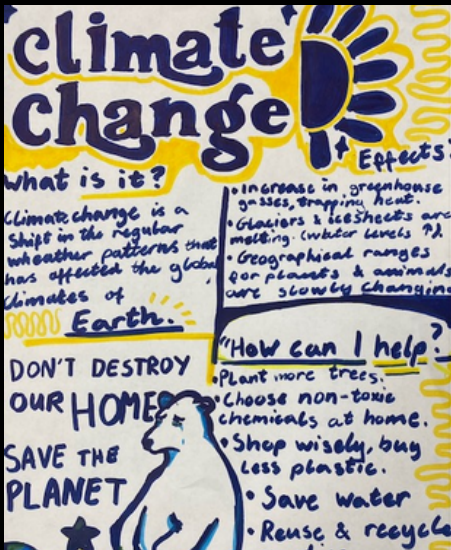 climate
change
What is it?
Climate change is a
shift in the regular
wheather patterns that
has affected the global
climates of
Earth.
DON'T DESTROY
OUR HOME
SAVE THE
PLANET
Effects:
• Increase in greenhouse
gasses, trapping heat.
• Glaciers & icesheets are
melting. (water levels ↑).
• Geographical ranges
for plants & animals
are slowly changing
"How can I help?
• Plant more trees.
• Choose non-toxic
chemicals at home.
• Shop wisely, buy
less plastic.
• Save water
• Reuse & recycle